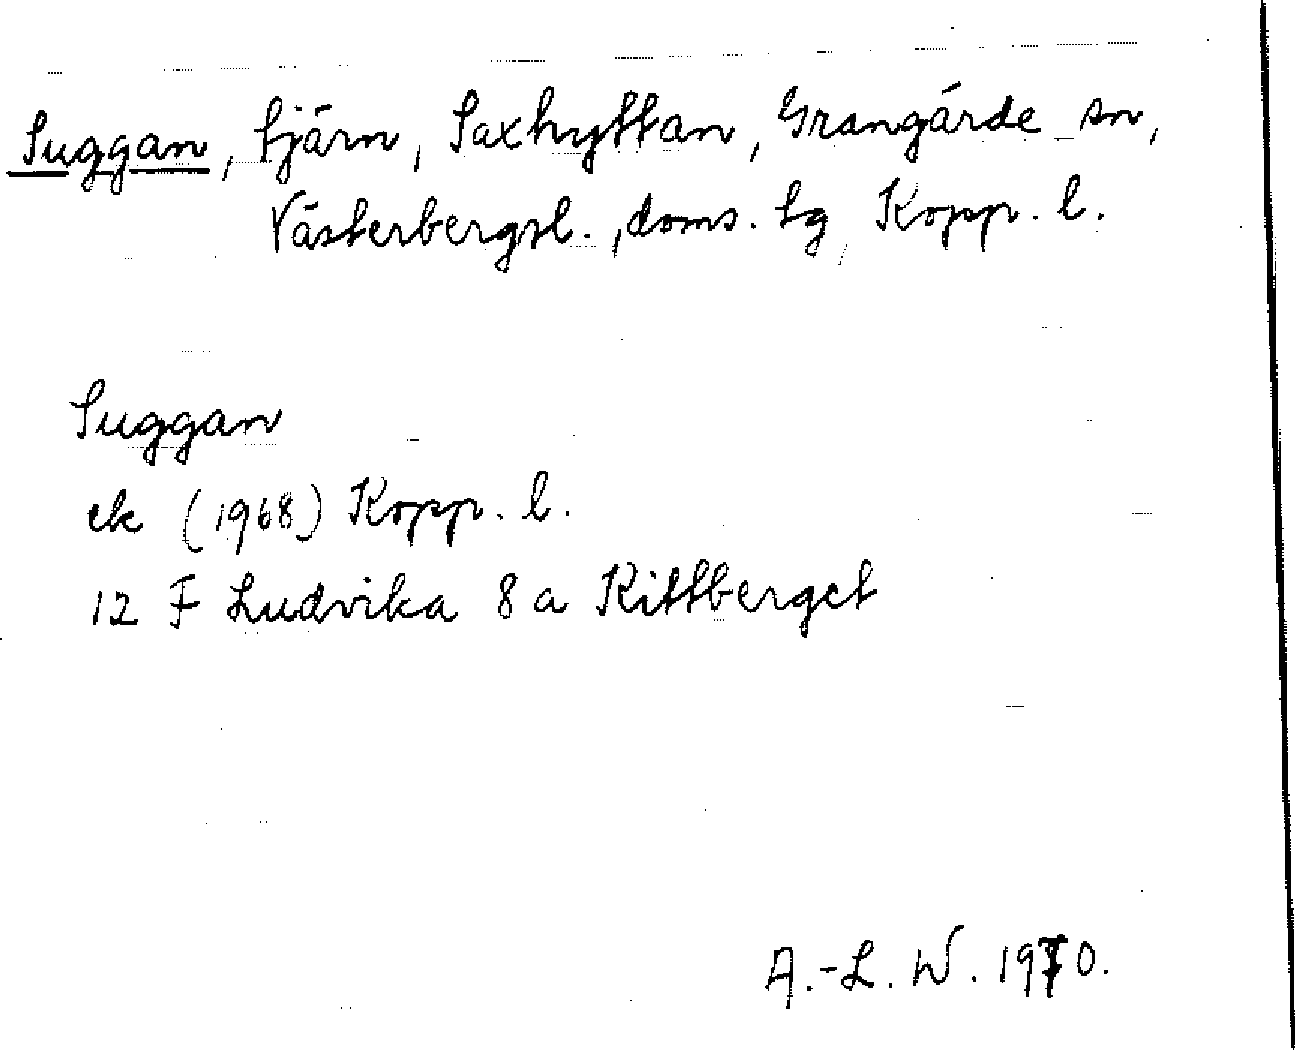 Suggan, tjärn, Saxhyttan, Grangärde sn,
Västerbergsl., doms. tg, Kopp. l.
Suggan
ek (1968) Kopp. l.
12 F Ludvika 8 a Kittberget
A.-L. W. 1970.